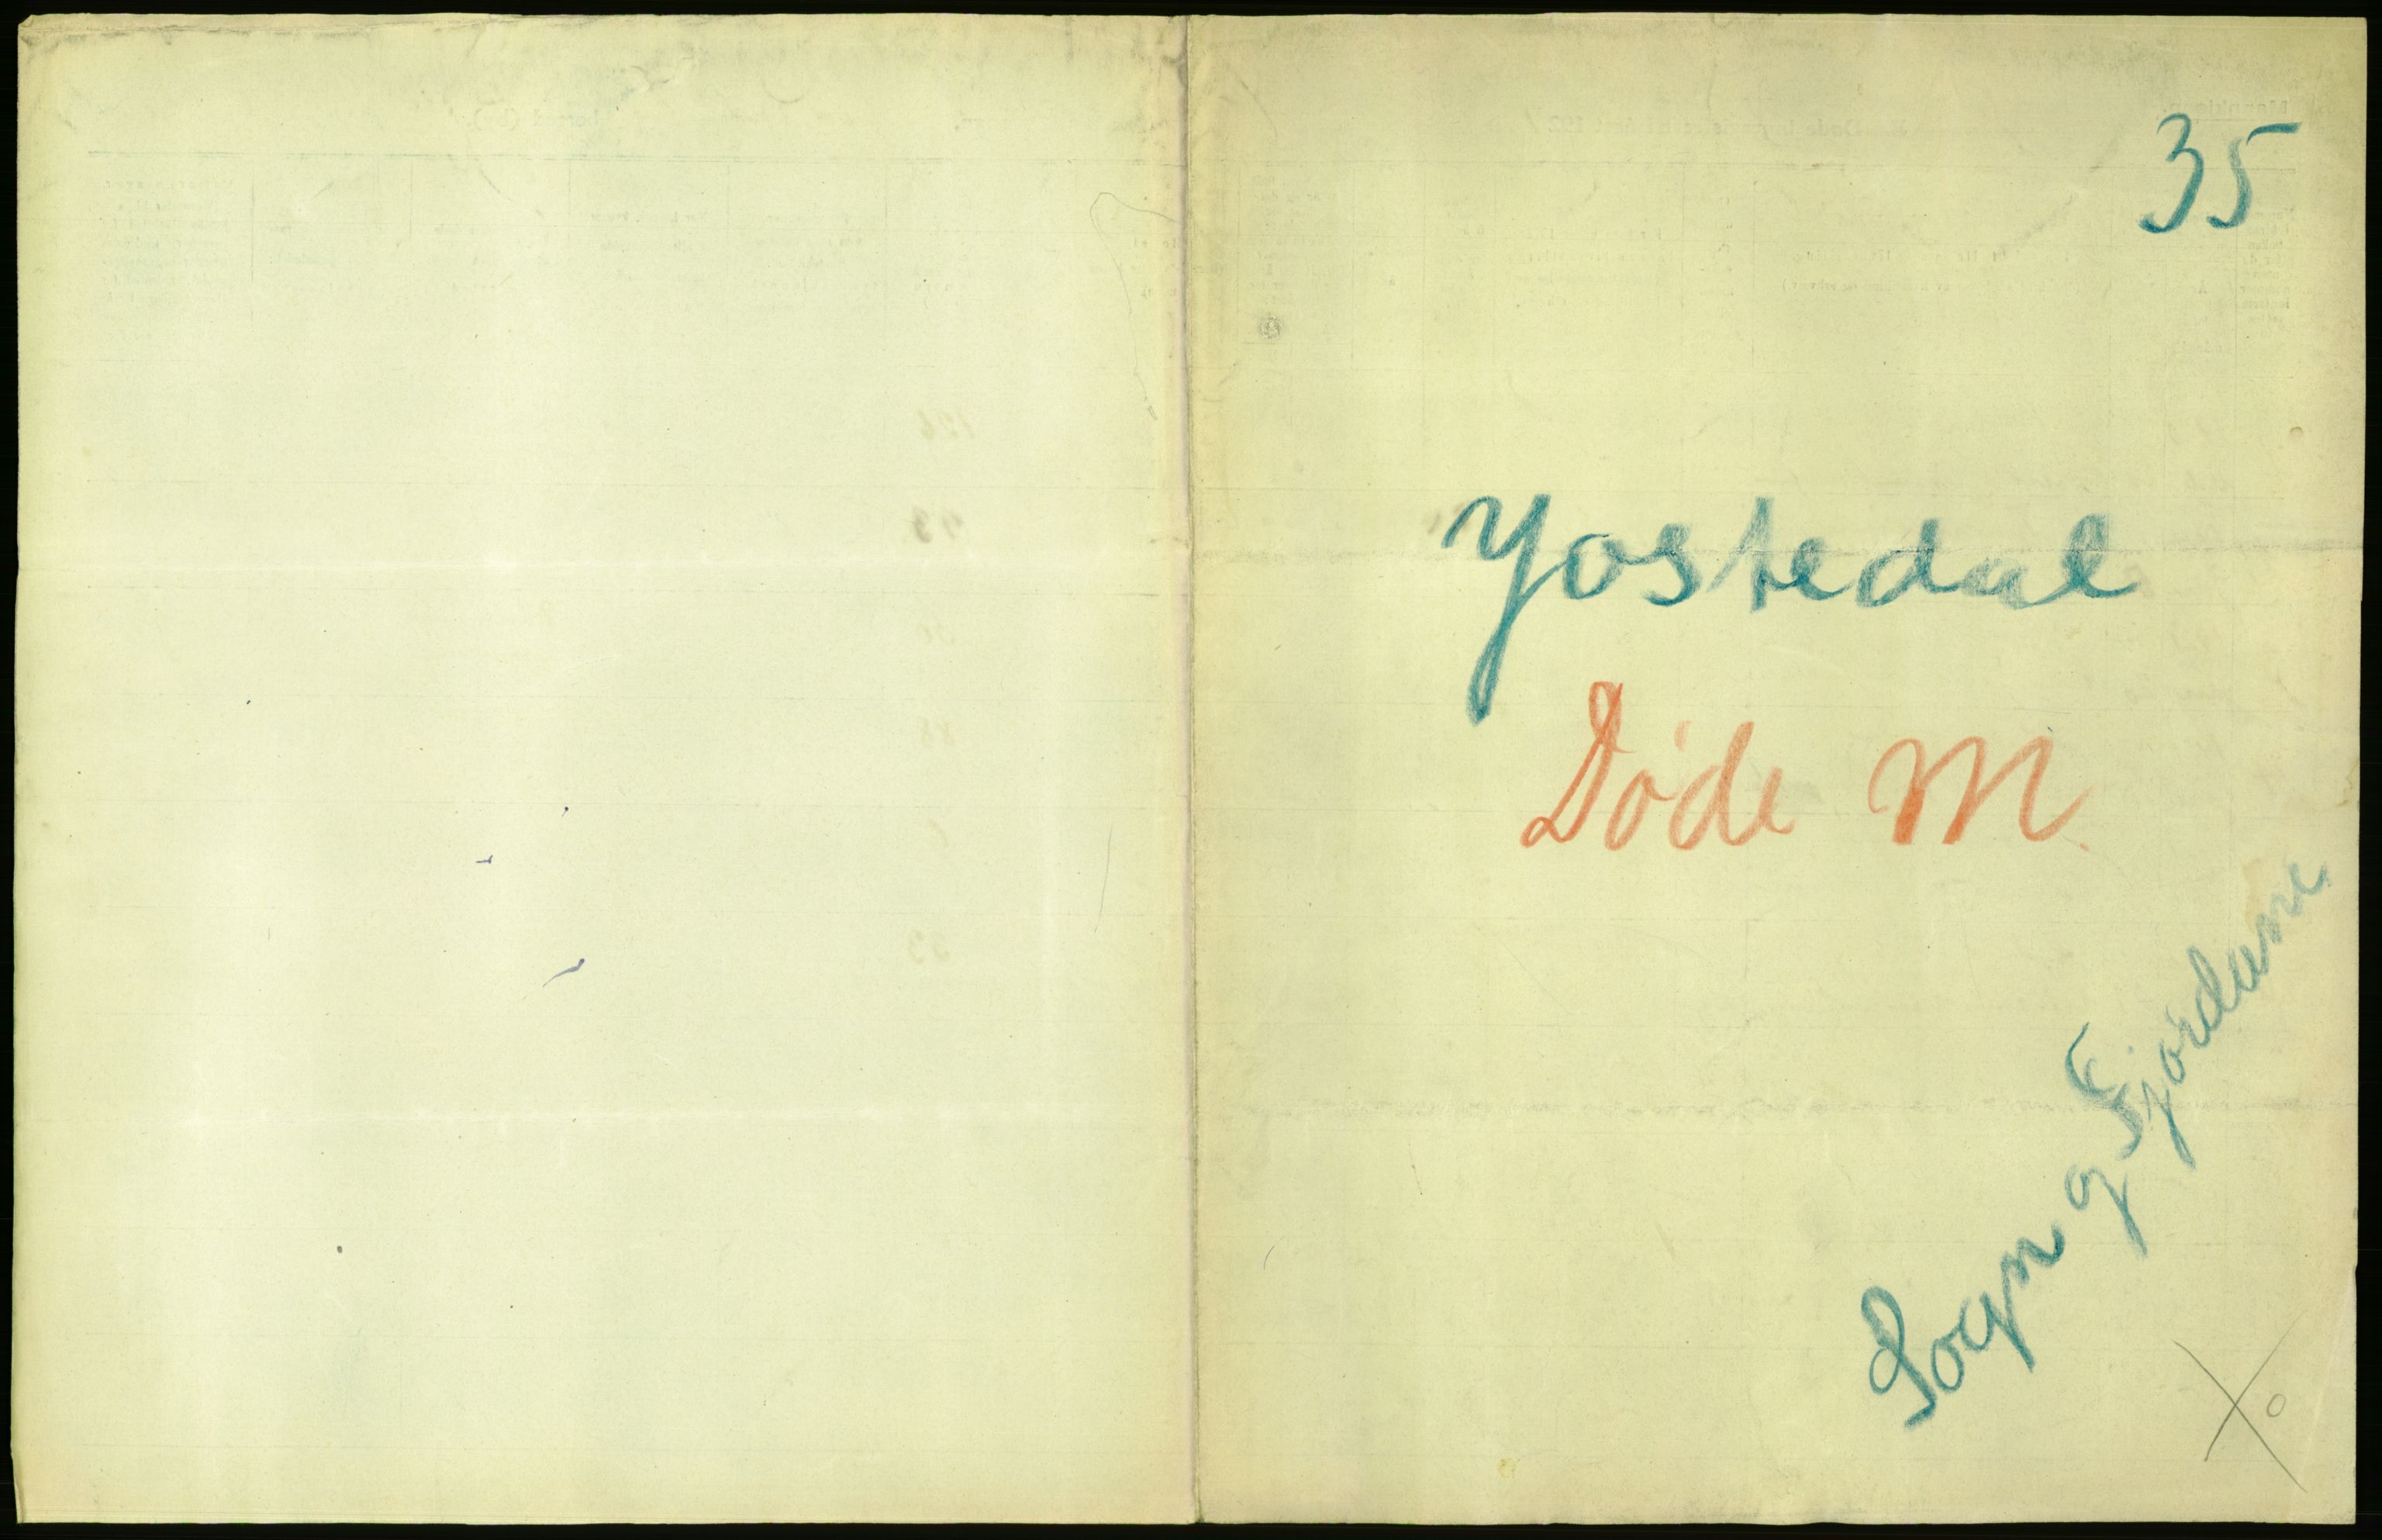 35
Jostedal
Døde M.
Sogn og Fjordane